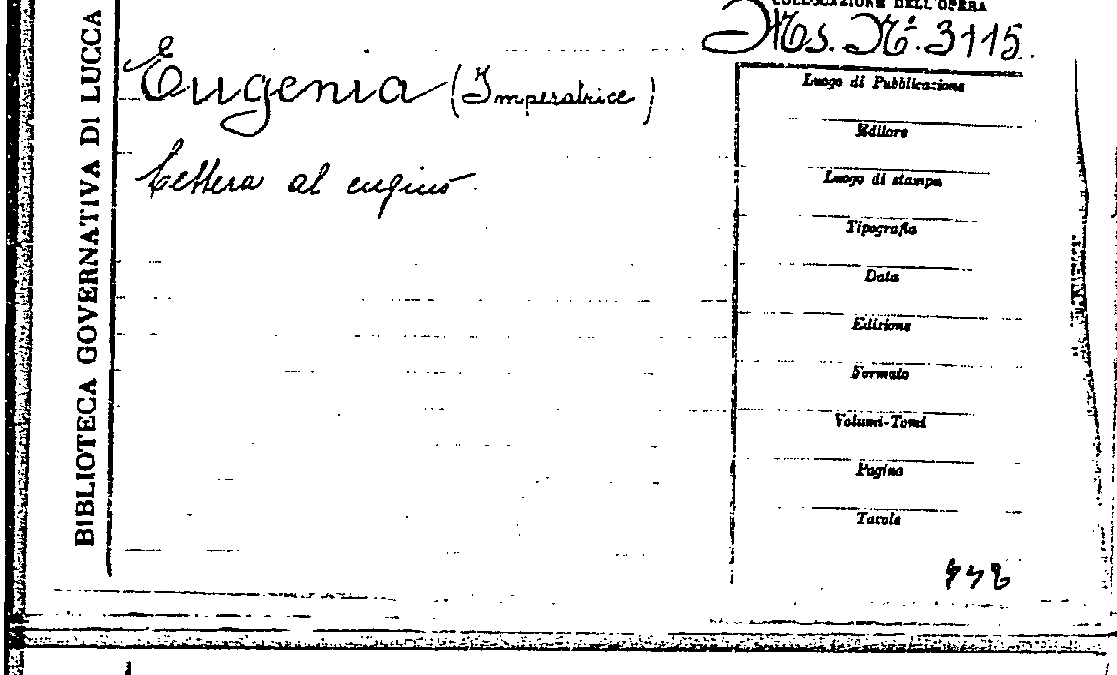 COLLOCAZIONE DELL'OPERA
Ms. N.º 3115.
BIBLIOTECA GOVERNATIVA DI LUCCA
Eugenia (Imperatrice)
Lettera al cugino
Luogo di Pubblicazione
Editore
Luogo di stampa
Tipografia
Data
Edizione
Formato
Volumi-Tomi
Pagine
Tavole